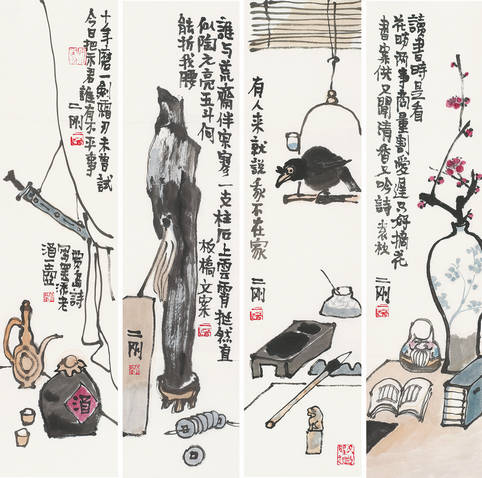 讀書時且看
花時两事商量割愛遲只好摘花
書案供又聞清香又吟詩 袁枚
二刚
有人来就説我不在家
二刚
誰与荒齋伴寂寥一支柱石上雲霄挺然直
似陶元亮五斗何
能折我腰
板橋文案
二刚
十年磨一劍霜刃未曾試
今日把示君誰有不平事
二刚
賈島詩
酒一壺
酒